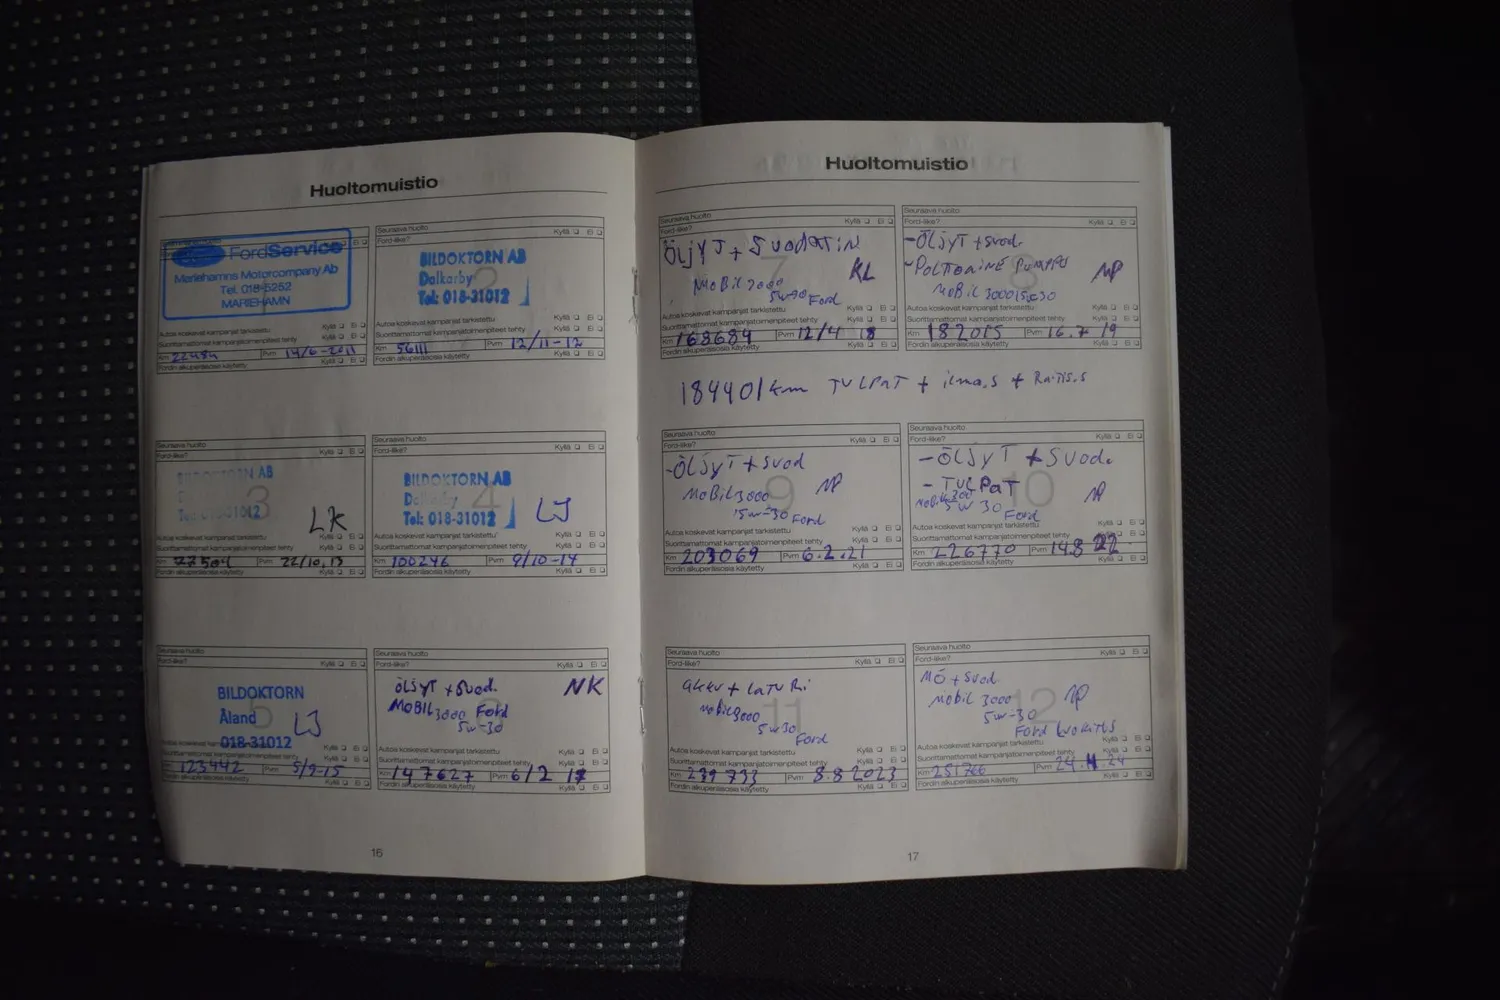 Huoltomuistio
FordService
Mariehamns Motorcompany Ab
Tel. 018-5252
MARIEHAMN
Autoa koskevat kampanjat tarkistettu Kyllä Ei
Suorittamattomat kampanjatoimenpiteet tehty
Kyllä Ei
Km 22484 Pvm 14/6-2011
Fordin alkuperäisosia käytetty Kyllä Ei
Seuraava huolto
Ford-liike? Kyllä Ei
2
BILDOKTORN AB
Dalkarby
Tel: 018-31012
Autoa koskevat kampanjat tarkistettu Kyllä Ei
Suorittamattomat kampanjatoimenpiteet tehty
Kyllä Ei
Km 56111 Pvm 12/11-12
Fordin alkuperäisosia käytetty Kyllä Ei
Seuraava huolto
Ford-liike? Kyllä Ei
3
BILDOKTORN AB
Tel: 018-31012
LK
Autoa koskevat kampanjat tarkistettu Kyllä Ei
Suorittamattomat kampanjatoimenpiteet tehty
Kyllä Ei
Km Pvm 22/10.13
Fordin alkuperäisosia käytetty Kyllä Ei
Seuraava huolto
Ford-liike? Kyllä Ei
4
BILDOKTORN AB
Dalkarby
Tel: 018-31012
LJ
Autoa koskevat kampanjat tarkistettu Kyllä Ei
Suorittamattomat kampanjatoimenpiteet tehty
Kyllä Ei
Km 100246 Pvm 9/10-14
Fordin alkuperäisosia käytetty Kyllä Ei
Seuraava huolto
Ford-liike? Kyllä Ei
5
BILDOKTORN
Åland
018-31012
LJ
Suorittamattomat kampanjatoimenpiteet tehty
Kyllä Ei
Km 123442 Pvm 5/9-15
Fordin alkuperäisosia käytetty Kyllä Ei
Seuraava huolto
Ford-liike? Kyllä Ei
ÖLJYT + Suod. NK
MOBIL 3000 Ford
5W-30
Autoa koskevat kampanjat tarkistettu Kyllä Ei
Suorittamattomat kampanjatoimenpiteet tehty
Kyllä Ei
Km 147627 Pvm 6/2 17
Fordin alkuperäisosia käytetty Kyllä Ei
16
Huoltomuistio
Seuraava huolto
Ford-liike? Kyllä Ei
7
ÖLJYT + SuodATIN
KL
MOBIL 3000
5W30 Ford
Autoa koskevat kampanjat tarkistettu Kyllä Ei
Suorittamattomat kampanjatoimenpiteet tehty
Kyllä Ei
Km 168684 Pvm 12/4 18
Fordin alkuperäisosia käytetty Kyllä Ei
Seuraava huolto
Ford-liike? Kyllä Ei
8
-ÖLJYT + Suod.
-POLTTOAINE PUMPPU
NP
MOBIL 3000 5W30
Autoa koskevat kampanjat tarkistettu Kyllä Ei
Suorittamattomat kampanjatoimenpiteet tehty
Kyllä Ei
Km 182015 Pvm 16.7 19
Fordin alkuperäisosia käytetty Kyllä Ei
184401km TULPAT + ilma.s + Raitis.s
Seuraava huolto
Ford-liike? Kyllä Ei
9
-ÖLJYT + Suod
MOBIL 3000 NP
5W-30 Ford
Autoa koskevat kampanjat tarkistettu Kyllä Ei
Suorittamattomat kampanjatoimenpiteet tehty
Kyllä Ei
Km 203069 Pvm 6.2.21
Fordin alkuperäisosia käytetty Kyllä Ei
Seuraava huolto
Ford-liike? Kyllä Ei
10
-ÖLJYT + Suod.
- TULPAT
NP
MOBIL 3000
5W 30 Ford
Autoa koskevat kampanjat tarkistettu Kyllä Ei
Suorittamattomat kampanjatoimenpiteet tehty
Kyllä Ei
Km 226770 Pvm 14.8 22
Fordin alkuperäisosia käytetty Kyllä Ei
Seuraava huolto
Ford-liike? Kyllä Ei
11
akku + LATURI
MOBIL 3000
5W30
Ford
Autoa koskevat kampanjat tarkistettu Kyllä Ei
Suorittamattomat kampanjatoimenpiteet tehty
Kyllä Ei
Km 239733 Pvm 8.8 2023
Fordin alkuperäisosia käytetty Kyllä Ei
Seuraava huolto
Ford-liike? Kyllä Ei
12
MÖ + Suod.
MOBIL 3000 NP
5W-30
Ford
Autoa koskevat kampanjat tarkistettu Kyllä Ei
Suorittamattomat kampanjatoimenpiteet tehty
Kyllä Ei
Km 251766 Pvm 24.4 24
Fordin alkuperäisosia käytetty Kyllä Ei
17